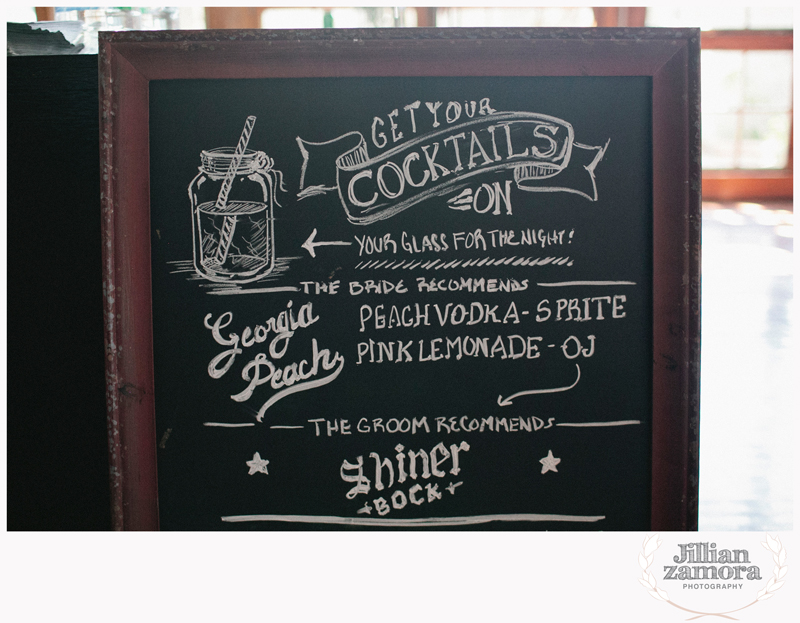 GET YOUR
COCKTAILS
ON
YOUR GLASS FOR THE NIGHT!
THE BRIDE RECOMMENDS
Georgia
Peach
PEACH VODKA - SPRITE
PINK LEMONADE - OJ
THE GROOM RECOMMENDS
Shiner
BOCK
Jillian
zamora
PHOTOGRAPHY